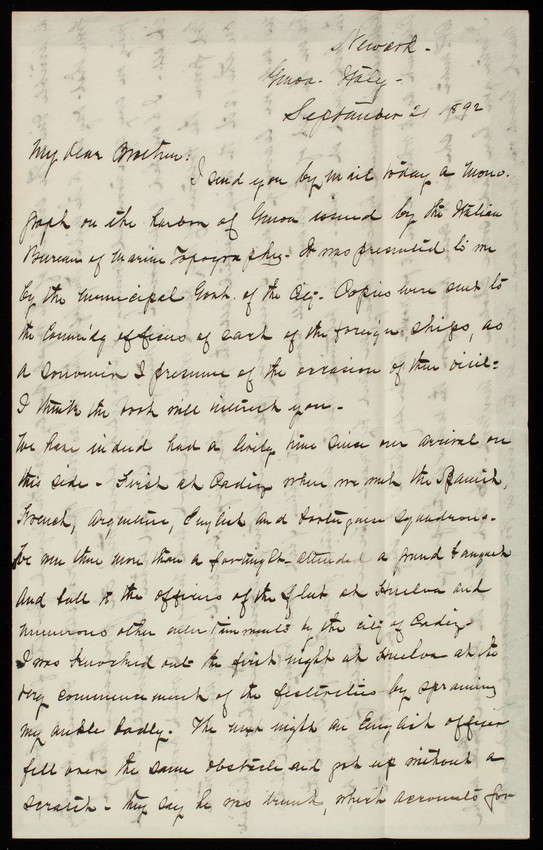 Newark.
Genoa. Italy.
September 21 1892
My dear Brother:
I send you by mail today a Mono-
graph on the harbor of Genoa issued by the Italian
Bureau of Marine Topography. It was presented to me
by the Municipal Govt. of the City. Copies were sent to
the Commd'g officers of each of the foreign ships, as
a souvenir I presume of the occasion of their visit.
I think the book will interest you.
We have indeed had a lively time since our arrival on
this side. First at Cadiz where we met the Spanish,
French, Argentine, English and Portuguese squadrons.
We were there more than a fortnight. Attended a grand banquet
and ball to the officers of the fleet at Huelva and
numerous other entertainments by the city of Cadiz.
I was knocked out the first night at Huelva at the
very commencement of the festivities by spraining
my ankle badly. The next night an English officer
fell over the same obstacle and got up without a
scratch. They say he was drunk, which accounts for